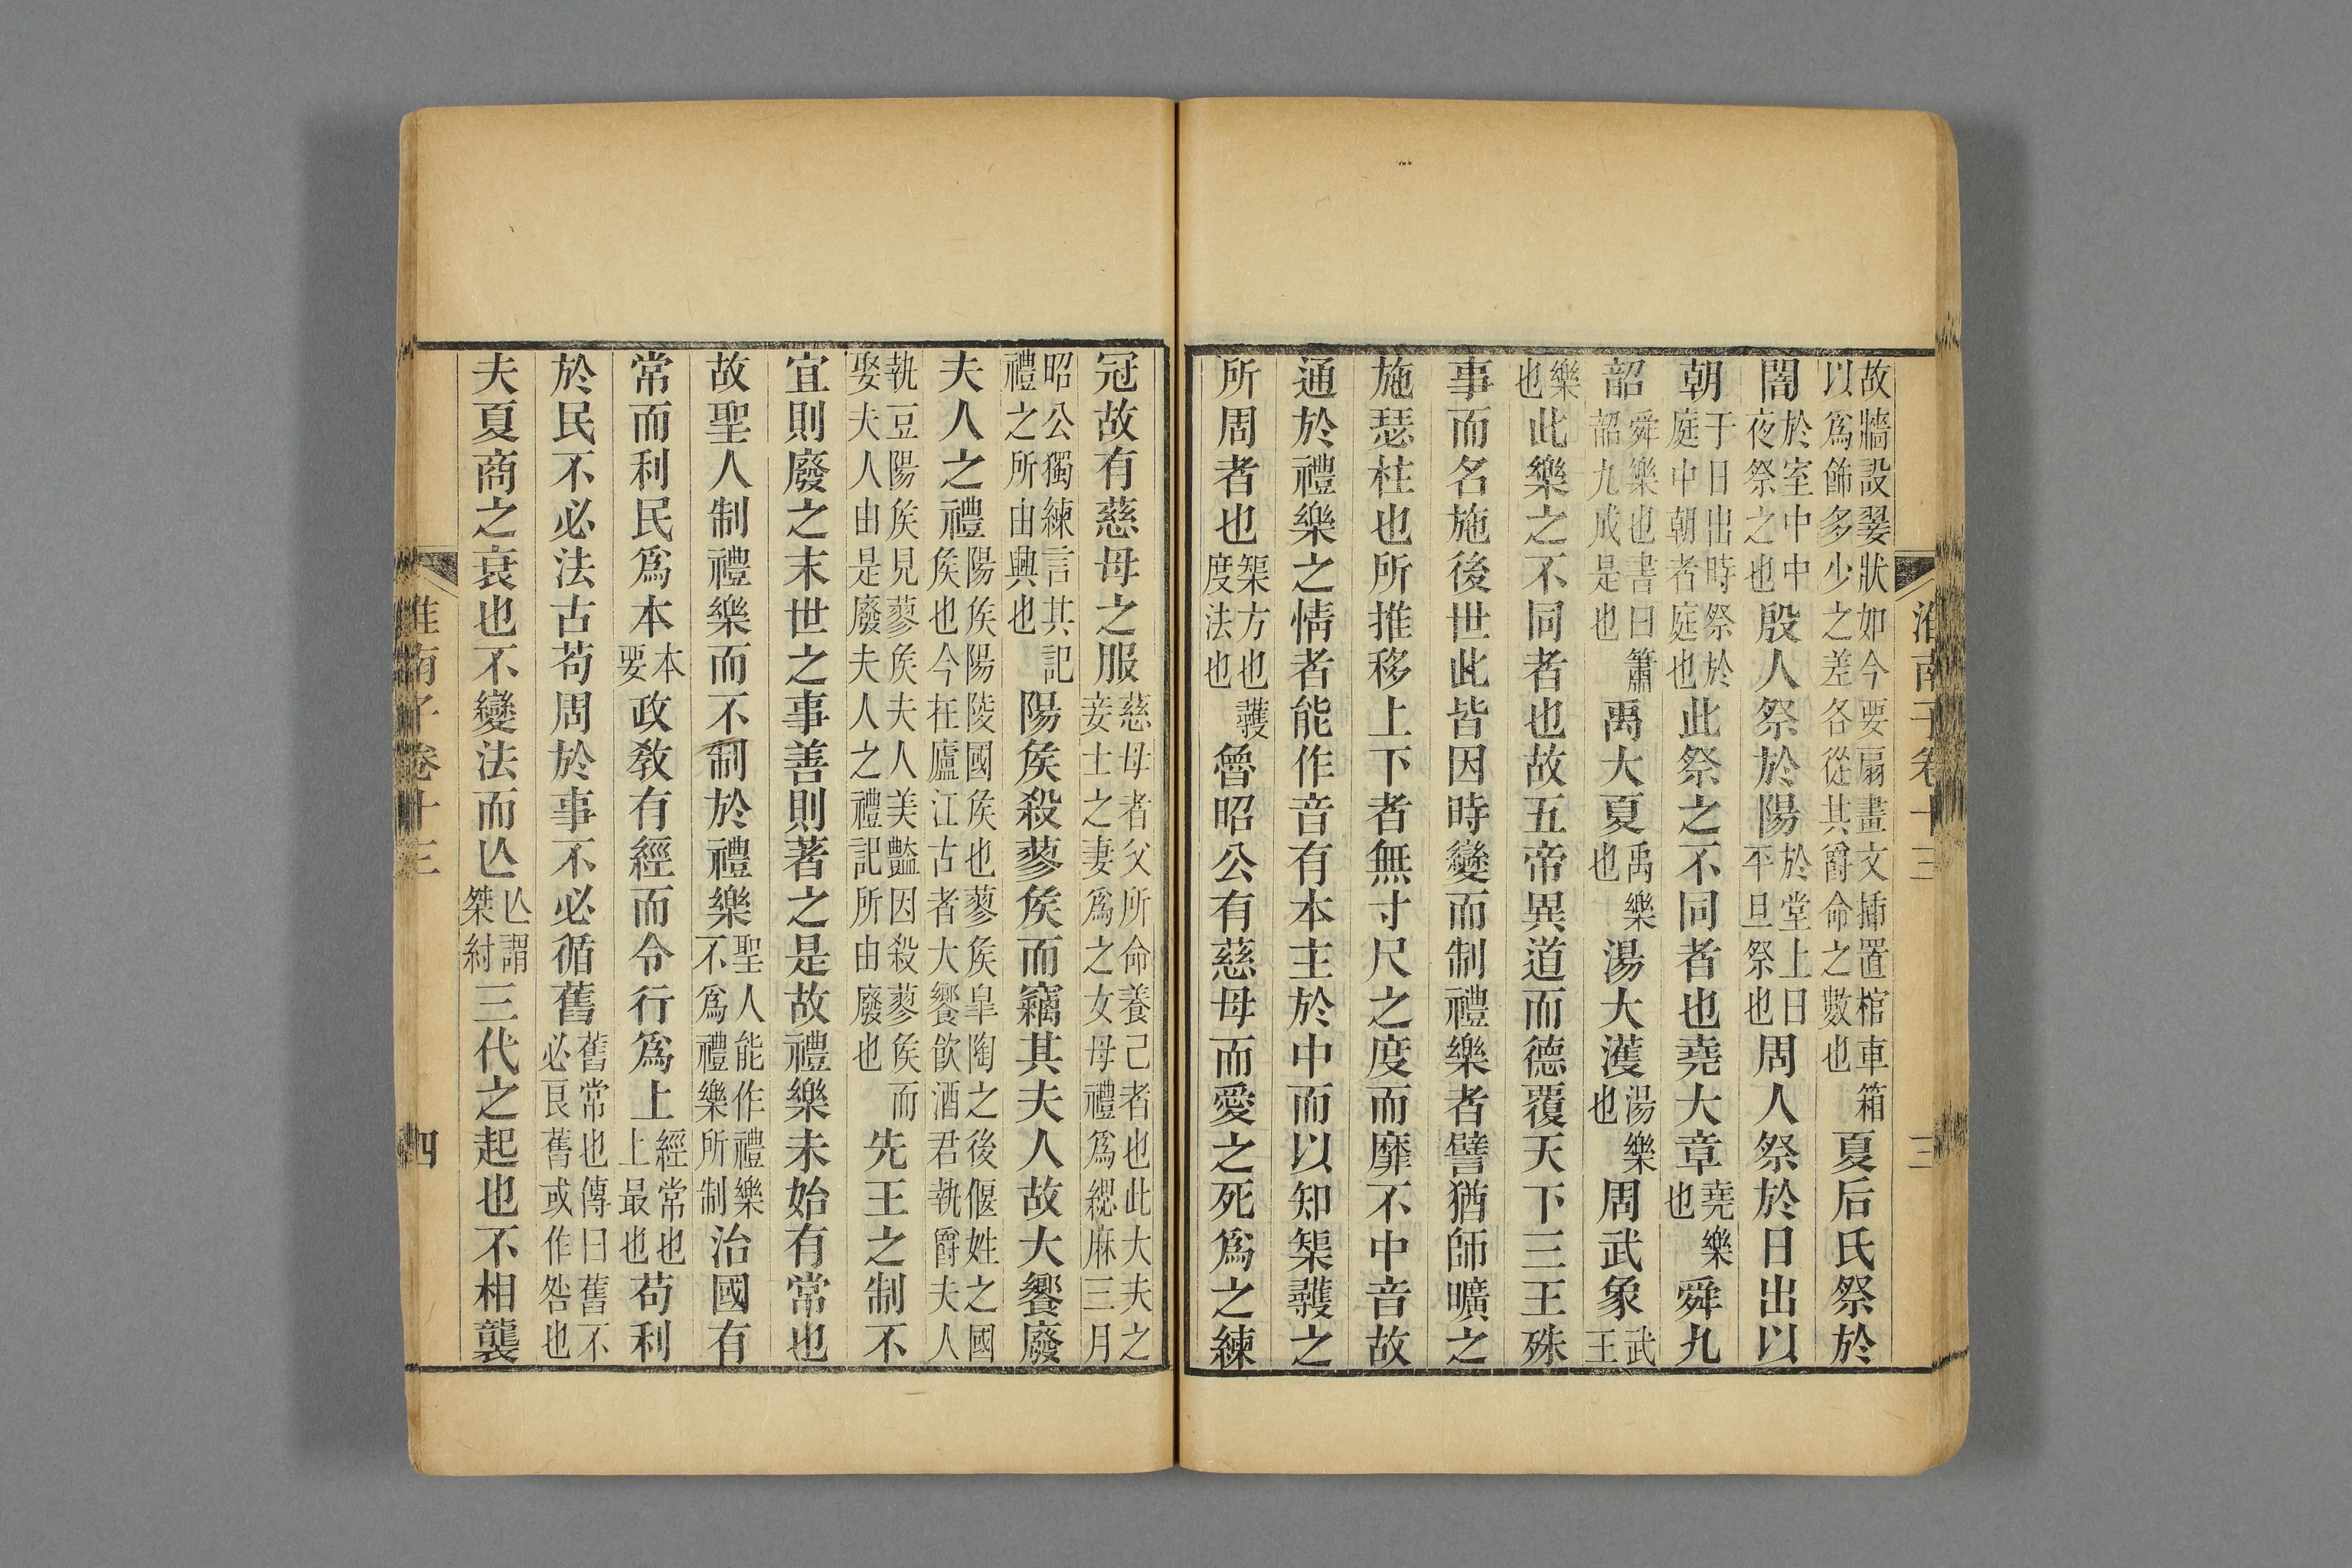 淮南子卷十三 三
故牆設翣狀如今要扇畫文揷置棺車箱以爲飾多少之差各從其爵命之數也夏后氏祭於
闇於室中中夜祭之也殷人祭於陽於堂上日平旦祭也周人祭於日出以
朝于日出時祭於庭中朝者庭也此祭之不同者也堯大章堯樂也舜九
韶舜樂也書曰簫韶九成是也禹大夏禹樂也湯大濩湯樂也周武象武王
樂也此樂之不同者也故五帝異道而德覆天下三王殊
事而名施後世此皆因時變而制禮樂者譬猶師曠之
施瑟柱也所推移上下者無寸尺之度而靡不中音故
通於禮樂之情者能作音有本主於中而以知榘彠之
所周者也榘方也彠度法也魯昭公有慈母而愛之死爲之練
冠故有慈母之服慈母者父所命養己者也此大夫之妾士之妻爲之女母禮爲緦麻三月
昭公獨練言其記禮之所由興也陽矦殺蓼矦而竊其夫人故大饗廢
夫人之禮陽矦陽陵國矦也蓼矦皐陶之後偃姓之國矦也今在廬江古者大饗飮酒君執爵夫人
執豆陽矦見蓼矦夫人美豔因殺蓼矦而娶夫人由是廢夫人之禮記所由廢也先王之制不
宜則廢之末世之事善則著之是故禮樂未始有常也
故聖人制禮樂而不制於禮樂聖人能作禮樂不爲禮樂所制治國有
常而利民爲本本要政敎有經而令行爲上經常也上最也苟利
於民不必法古苟周於事不必循舊舊常也傳曰舊不必良舊或作咎也
夫夏商之衰也不變法而亾亾謂桀紂三代之起也不相襲
淮南子卷十三 四